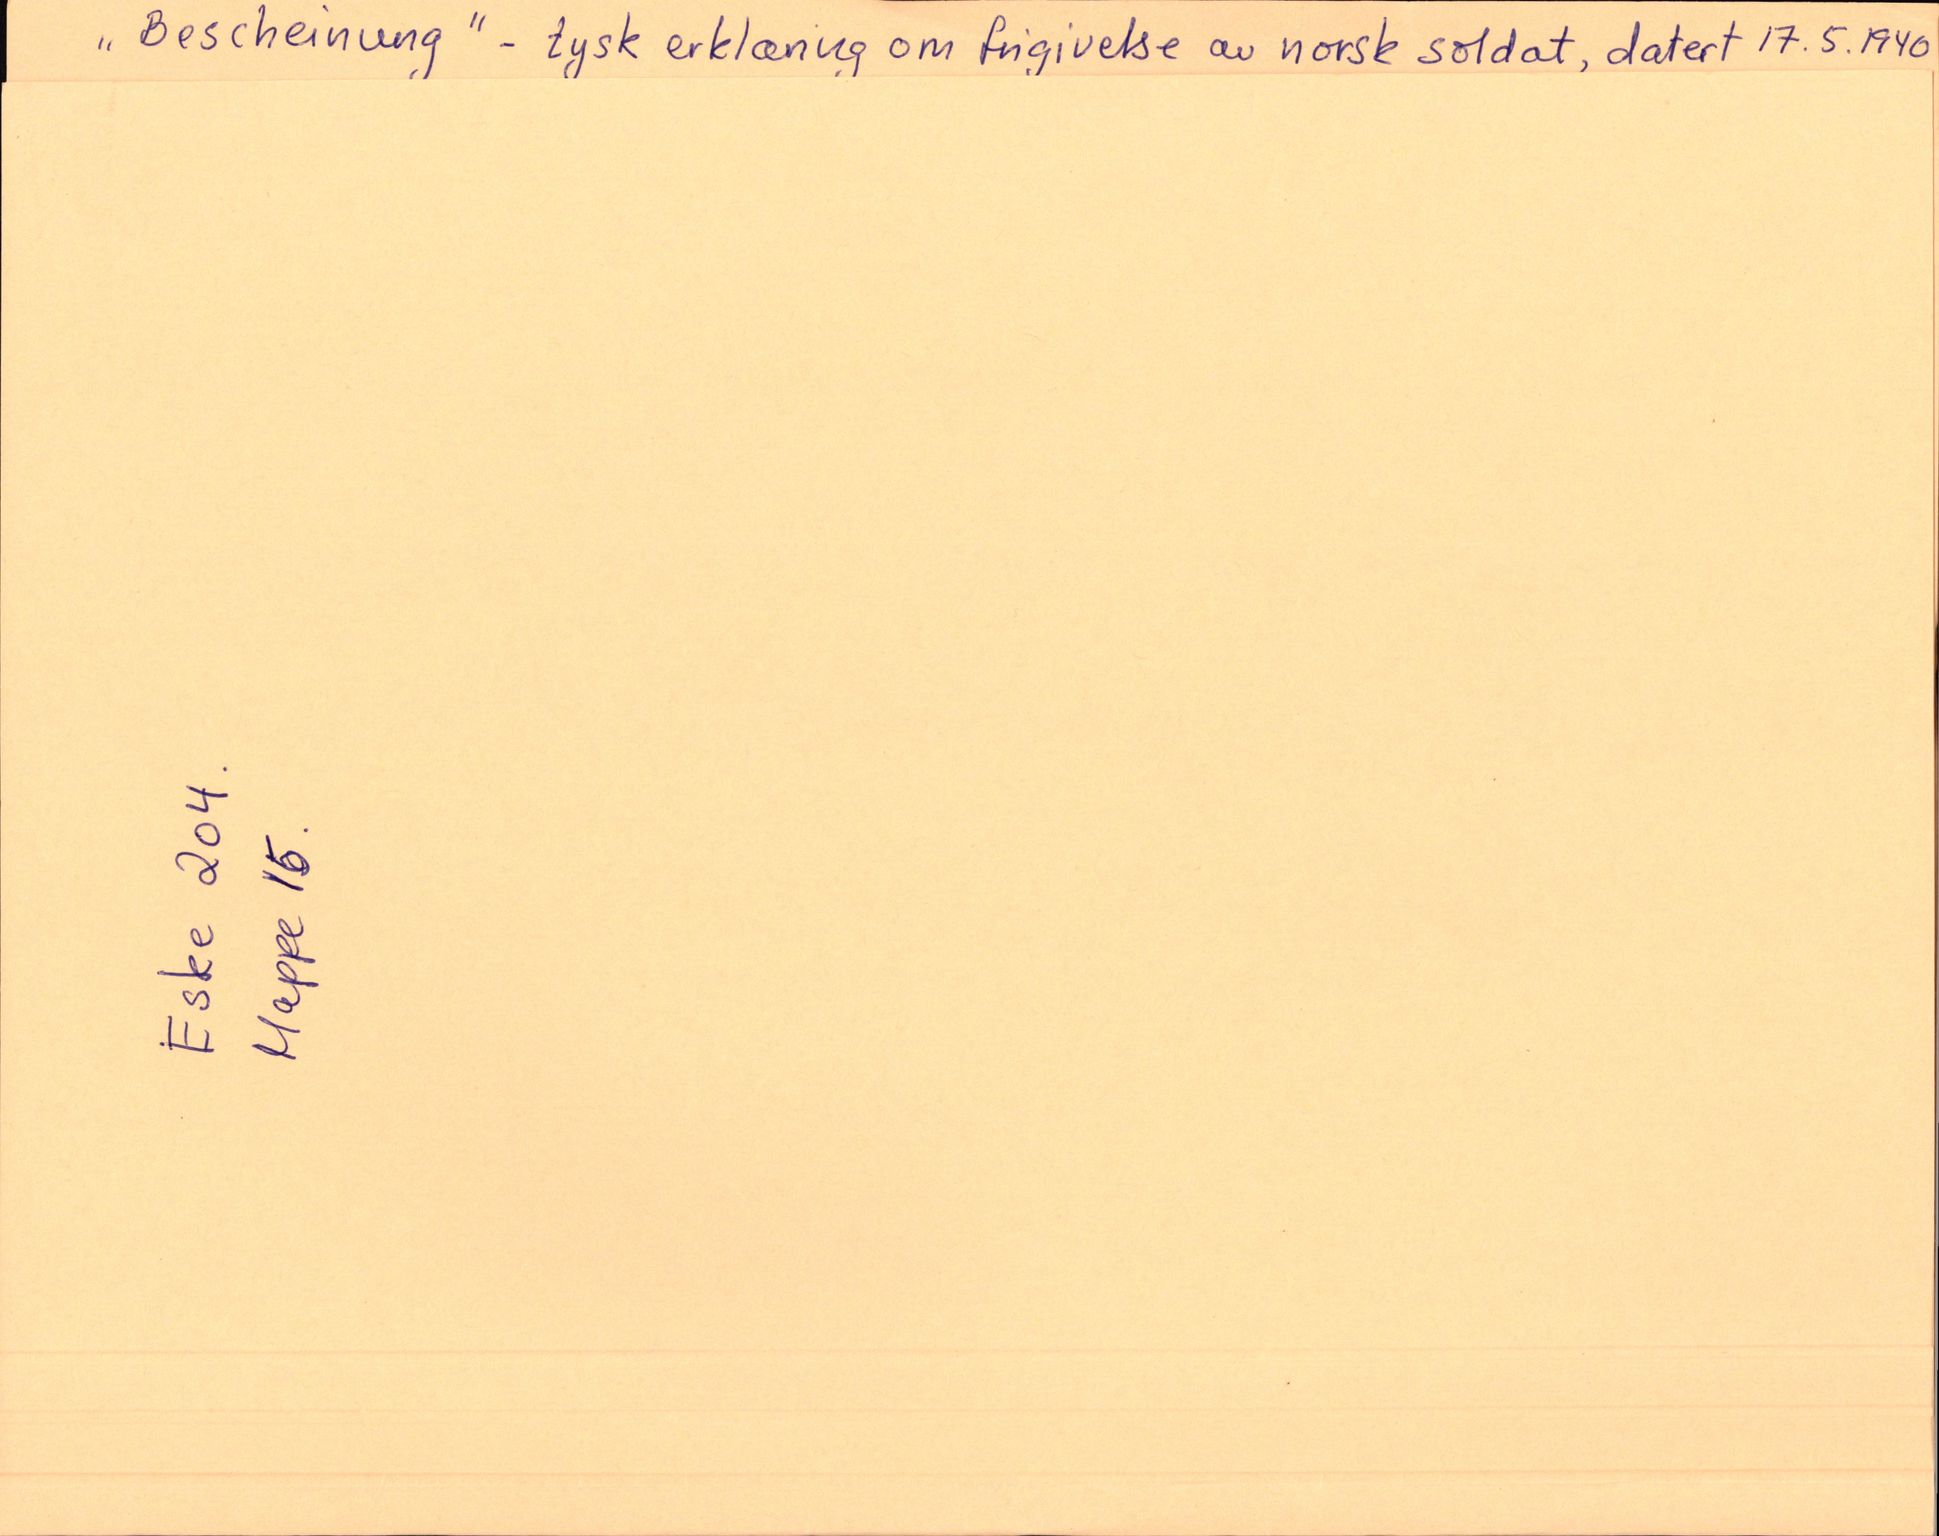 „Bescheinung" - tysk erklæring om frigivelse av norsk soldat, datert 17.5.1940
Eske 204.
Mappe 15.